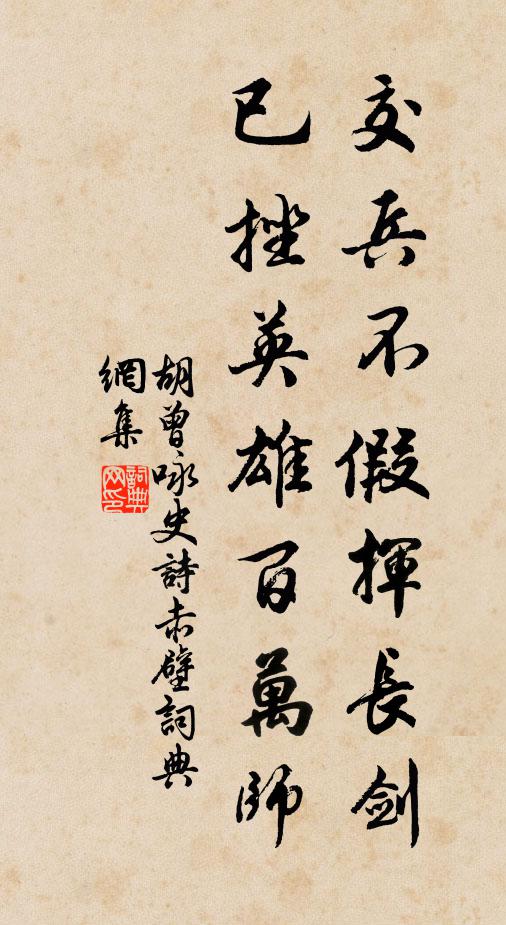 交兵不假揮長劍
已挫英雄百萬師
胡曾咏史詩赤壁詞典
網集
詞典網印